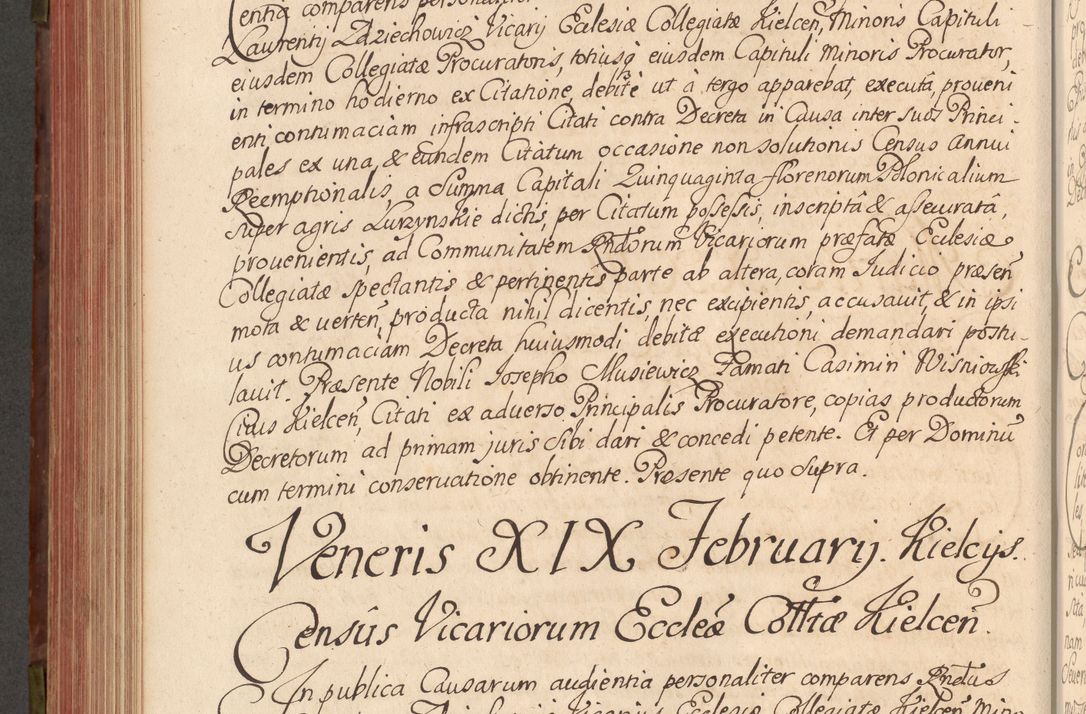 entia comparens
Laurentij Zdziechowicz Vicarij Ecclesiæ Collegiatæ Kielcen̄, Minoris Capituli
eiusdem Collegiatæ Procuratoris, totiusq̃ eiusdem Capituli Minoris Procurator,
in termino hodierno ex Citatione, debite ut à tergo apparebat, executa, proueni
enti contumaciam infrascripti Citati contra Decreta in Causa inter suos Princi-
pales ex una, & eundem Citatum occasione non solutionis Census Annui
Reemptionalis, a Summa Capitali Quinquaginta florenorum Polonicalium
super agris Lurzynskie dictis, per Citatum possessis, inscriptâ & assecuratâ,
prouenientis, ad Communitatem Rndorum Vicariorum præfatæ Ecclesiæ
Collegiatæ spectantis & pertinentis parte ab altera, coram Iudicio præsen̄
mota & uerten̄ producta nihil dicentis, nec excipientis, accusauit, & in ipsi
us contumaciam Decreta huiusmodi debitæ executioni demandari postu-
lauit. Præsente Nobili Iosepho Musiewicz Famati Casimiri Wisniowski
Ciuis Kielcen̄, Citati ex aduerso Principalis Procuratore, copias productorum
Decretorum ad primam juris sibi dari & concedi petente. Et per Dominū
cum termini conseruatione obtinente. Præsente quo supra.
Veneris XIX Februarij. Kielcijs.
Censûs Vicariorum Eccleæ Colltæ Kielcen̄.
In publica Causarum audientia personaliter comparens Rndus
Vicarius Ecclesiæ Collegiatæ Kielcen̄ Mino